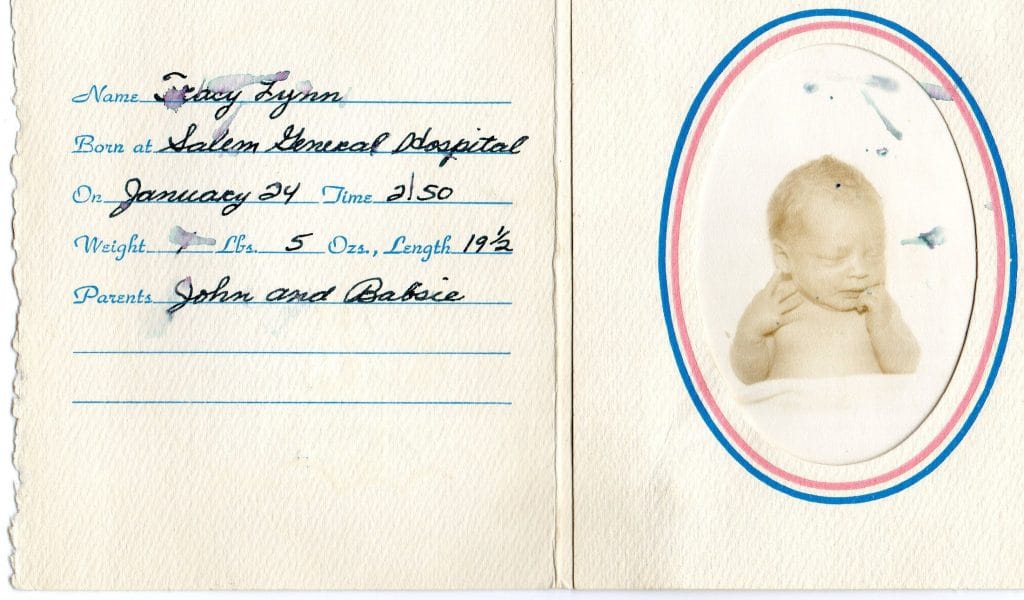 Name Tracy Lynn
Born at Salem General Hospital
On January 24 Time 2:50
Weight Lbs. 5 Ozs., Length 19 1/2
Parents John and Babsie